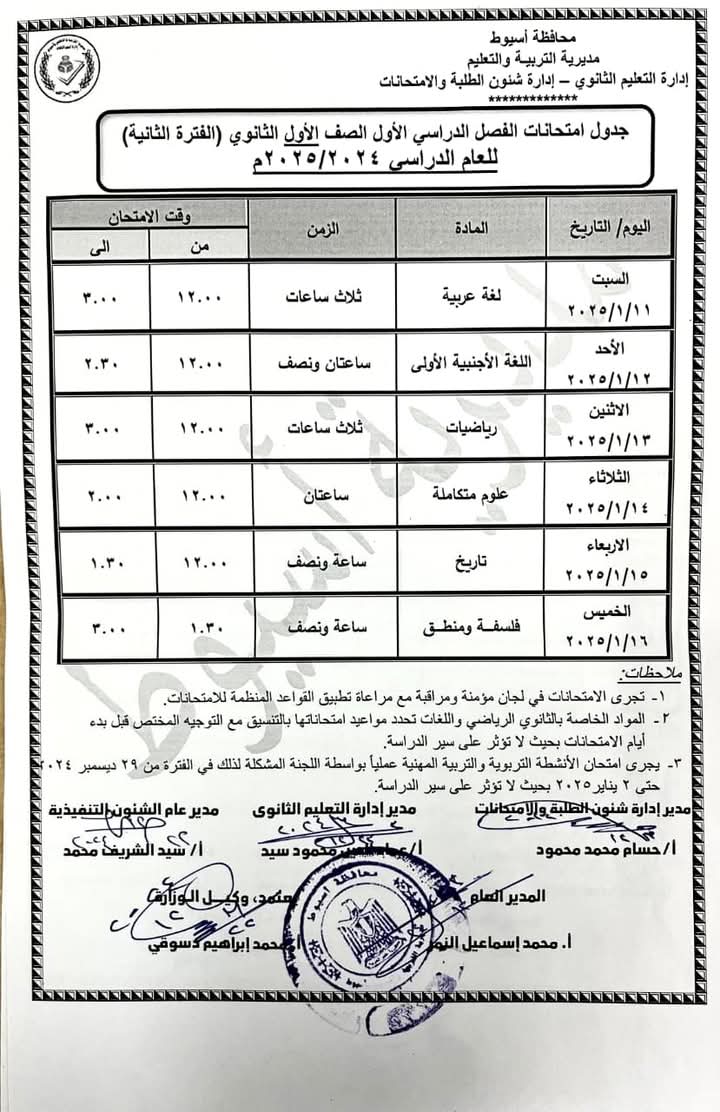 محافظة أسيوط
مديرية التربية والتعليم
إدارة التعليم الثانوي – إدارة شئون الطلبة والامتحانات
*************
جدول امتحانات الفصل الدراسي الأول الصف الأول الثانوي (الفترة الثانية)
للعام الدراسي ٢٠٢٥/٢٠٢٤م
اليوم/ التاريخ المادة الزمن وقت الامتحان
من الى
السبت ٢٠٢٥/١/١١ لغة عربية ثلاث ساعات ١٢.٠٠ ٣.٠٠
الأحد ٢٠٢٥/١/١٢ اللغة الأجنبية الأولى ساعتان ونصف ١٢.٠٠ ٢.٣٠
الاثنين ٢٠٢٥/١/١٣ رياضيات ثلاث ساعات ١٢.٠٠ ٣.٠٠
الثلاثاء ٢٠٢٥/١/١٤ علوم متكاملة ساعتان ١٢.٠٠ ٢.٠٠
الاربعاء ٢٠٢٥/١/١٥ تاريخ ساعة ونصف ١٢.٠٠ ١.٣٠
الخميس ٢٠٢٥/١/١٦ فلسفة ومنطق ساعة ونصف ١.٣٠ ٣.٠٠
ملاحظات:
١- تجرى الامتحانات في لجان مؤمنة ومراقبة مع مراعاة تطبيق القواعد المنظمة للامتحانات.
٢- المواد الخاصة بالثانوي الرياضي واللغات تحدد مواعيد امتحاناتها بالتنسيق مع التوجيه المختص قبل بدء
أيام الامتحانات بحيث لا تؤثر على سير الدراسة.
٣- يجرى امتحان الأنشطة التربوية والتربية المهنية عملياً بواسطة اللجنة المشكلة لذلك في الفترة من ٢٩ ديسمبر ٢٠٢٤
حتى ٢ يناير ٢٠٢٥ بحيث لا تؤثر على سير الدراسة.
مدير إدارة شئون الطلبة والامتحانات مدير إدارة التعليم الثانوى مدير عام الشئون التنفيذية
أ/ حسام محمد محمود أ/ محمود سيد أ/ سيد الشريف محمد
المدير العام يعتمد، وكيل الوزارة
أ. محمد إسماعيل النمر أ. محمد إبراهيم دسوقي
محافظة أسيوط
مديرية أسيوط